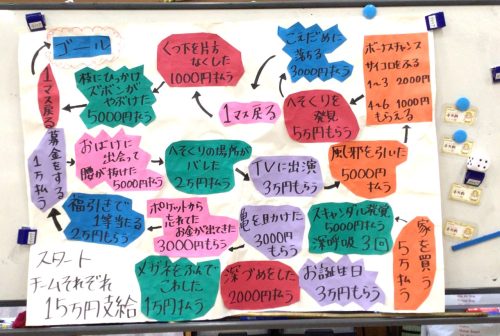 ゴール
くつ下を片方
なくした
1000円払う
こえだめに
落ちる
3000円払う
ボーナスチャンス
サイコロをふる
1〜3 2000円
4〜6 1000円
もらえる
1マス戻る
枝にひっかけ
ズボンが
やぶけた
5000円払う
1マス戻る
へそくりを
発見
5万円もらう
募金をする
1万払う
おばけに
出会って
腰が抜けた
5000円払う
へそくりの場所が
バレた
2万円払う
TVに出演
3万円もらう
風邪を引いた
5000円
払う
福引きで
1等当たる
2万円もらう
ポケットから
忘れてた
お金が出てきた
3000円もらう
亀を助けた
3000円
もらう
スキャンダル発覚
5000円払う
深呼吸3回
家を買う
5万払う
スタート
チームそれぞれ
15万円支給
メガネをふんで
こわした
1万円払う
深づめをした
2000円払う
お誕生日
3万円もらう